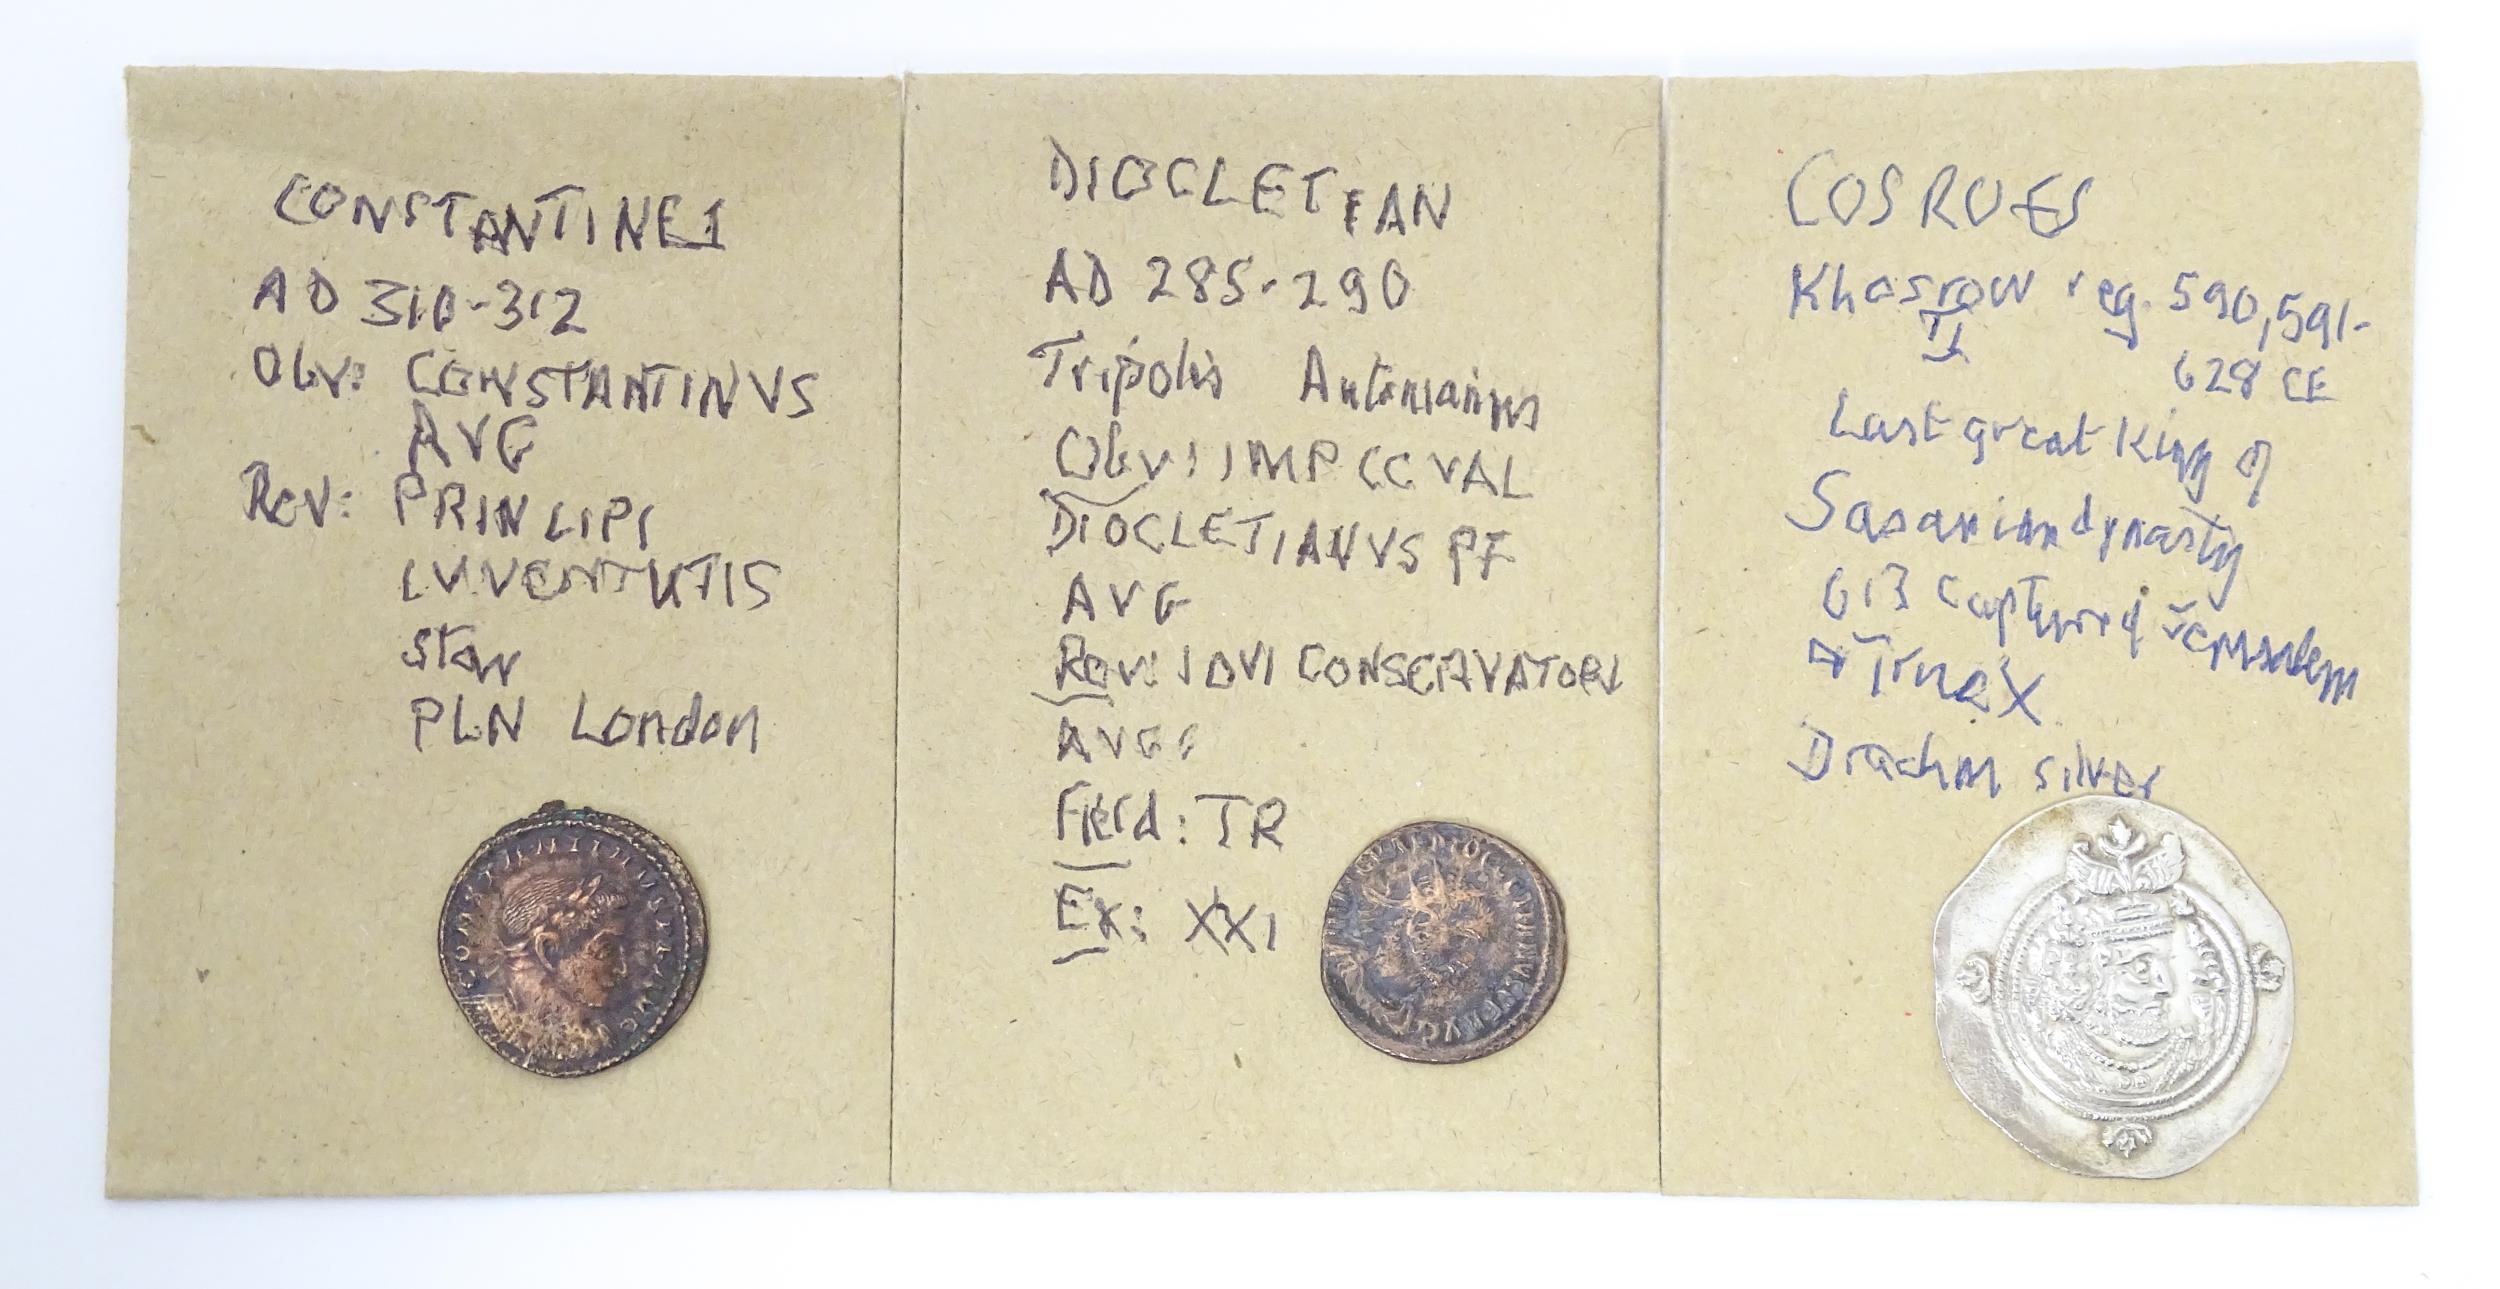 CONSTANTINE I
AD 310-312
Obv: CONSTANTINVS
AVG
Rev: PRINCIPI
IVVENTUTIS
star
PLN London
DIOCLETIAN
AD 285-290
Tripolis Antoninianus
Obv: IMP CC VAL
DIOCLETIANVS PF
AVG
Rev: IOVI CONSERVATORI
AVGG
Field: TR
Ex: XXI
COSROES
Khosrow reg. 590, 591-
II
628 CE
Last great King of
Sasanian dynasty
613 captured Jerusalem
Drachm silver